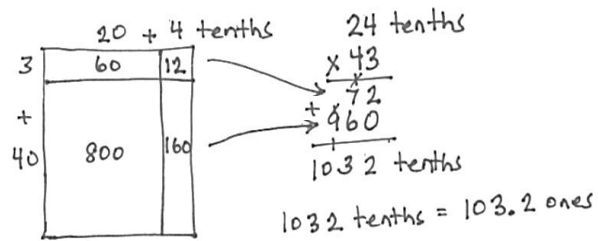 20 + 4 tenths
3 60 12
+
40 800 160
24 tenths
x 43
72
+ 960
1032 tenths
1032 tenths = 103.2 ones